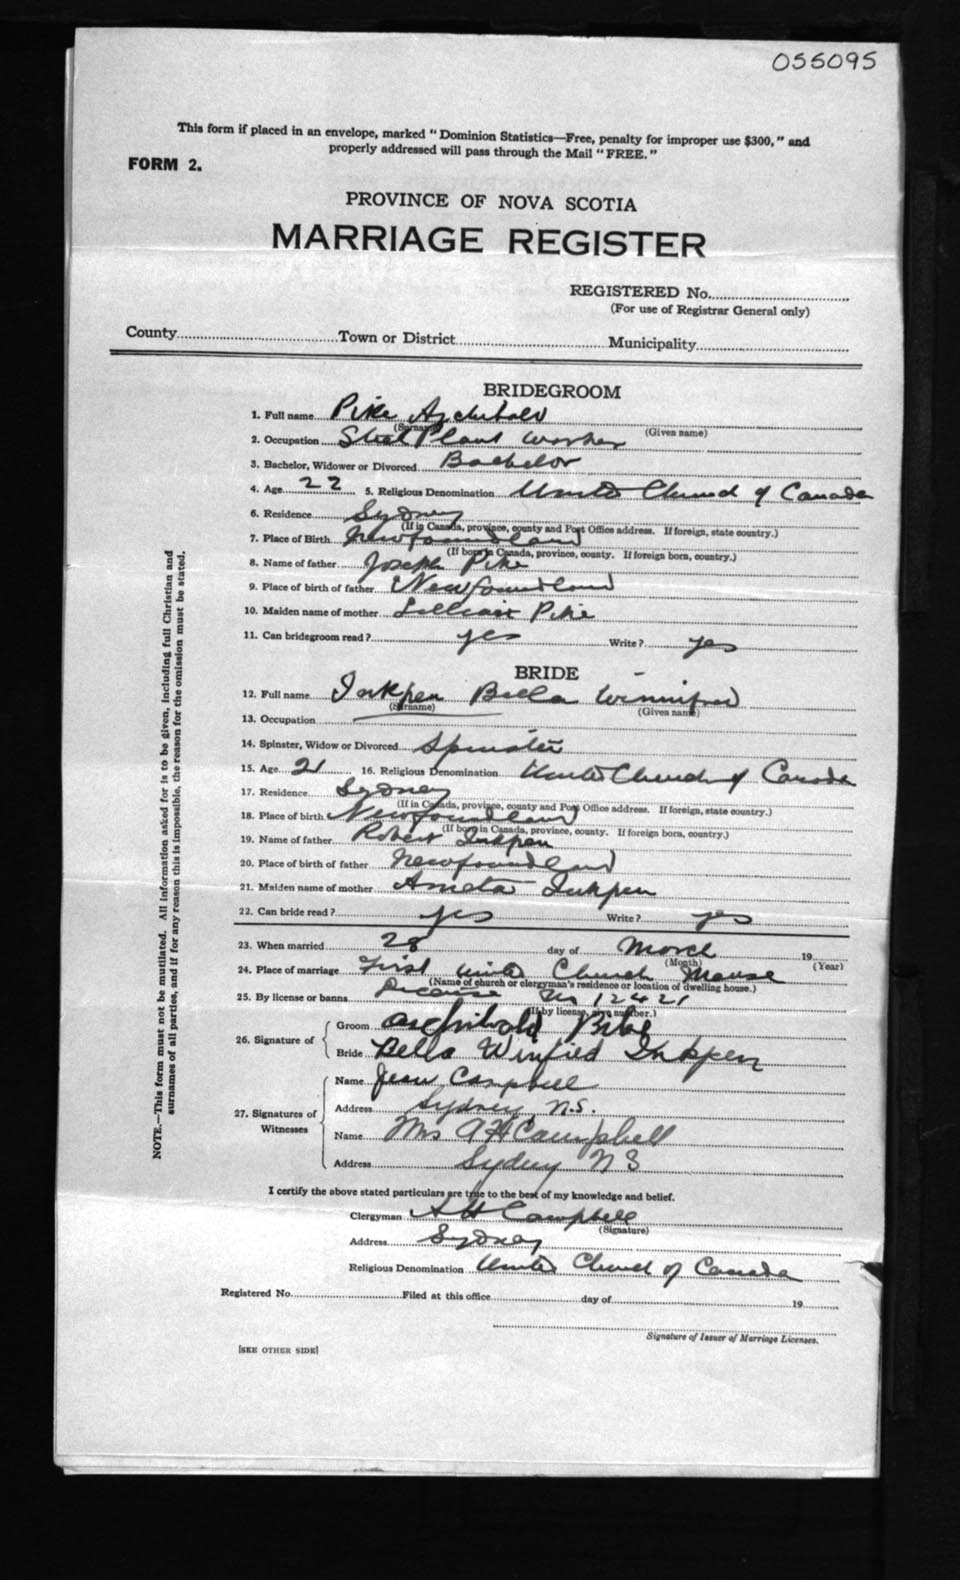 055095
This form if placed in an envelope, marked "Dominion Statistics—Free, penalty for improper use $300," and
properly addressed will pass through the Mail "FREE."
FORM 2.
PROVINCE OF NOVA SCOTIA
MARRIAGE REGISTER
REGISTERED No.
(For use of Registrar General only)
County Town or District Municipality
BRIDEGROOM
1. Full name Pike Archibald
(Surname) (Given name)
2. Occupation Steel Plant Worker
3. Bachelor, Widower or Divorced Bachelor
4. Age 22 5. Religious Denomination United Church of Canada
6. Residence Sydney
(If in Canada, province, county and Post Office address. If foreign, state country.)
7. Place of Birth Newfoundland
(If born in Canada, province, county. If foreign born, country.)
8. Name of father Joseph Pike
9. Place of birth of father Newfoundland
10. Maiden name of mother Lillian Pike
11. Can bridegroom read? yes Write? yes
BRIDE
12. Full name Inkpen Bella Winnifred
(Surname) (Given name)
13. Occupation
14. Spinster, Widow or Divorced Spinster
15. Age 21 16. Religious Denomination United Church of Canada
17. Residence Sydney
(If in Canada, province, county and Post Office address. If foreign, state country.)
18. Place of birth Newfoundland
(If born in Canada, province, county. If foreign born, country.)
19. Name of father Robert Inkpen
20. Place of birth of father Newfoundland
21. Maiden name of mother Ameta Inkpen
22. Can bride read? yes Write? yes
23. When married 28 day of March 19
(Month) (Year)
24. Place of marriage First United Church Manse
(Name of church or clergyman's residence or location of dwelling house.)
25. By license or banns License No 12421
(If by license, give number.)
26. Signature of
Groom Archibald
Bride Bella Winfied Inkpen
27. Signatures of Witnesses
Name Jean Campbell
Address Sydney, N.S.
Name Mrs A H Campbell
Address Sydney N S
I certify the above stated particulars are true to the best of my knowledge and belief.
Clergyman A H Campbell
(Signature)
Address Sydney
Religious Denomination United Church of Canada
Registered No. Filed at this office day of 19
Signature of Issuer of Marriage Licenses.
[SEE OTHER SIDE]
NOTE.—This form must not be mutilated. All information asked for is to be given, including full Christian and
surnames of all parties, and if for any reason this is impossible, the reason for the omission must be stated.